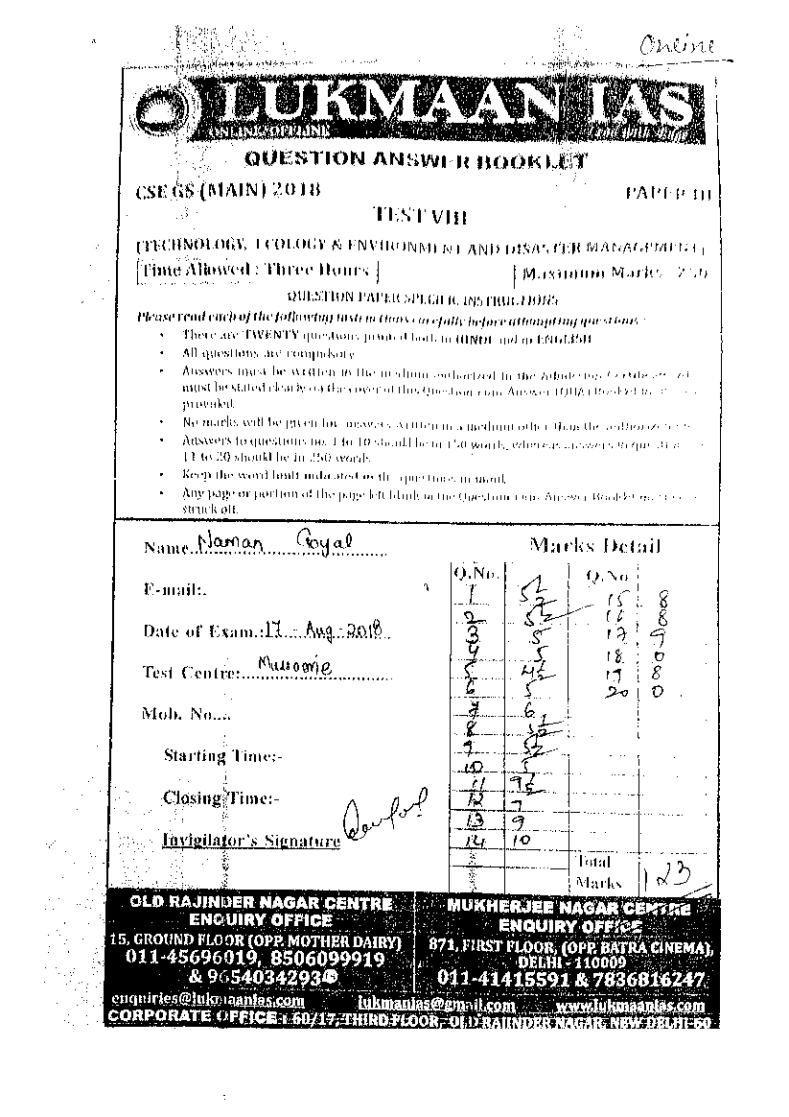 Online
LUKMAAN IAS
ONLINE/OFFLINE
QUESTION ANSWER BOOKLET
CSE GS (MAIN) 2018 PAPER III
TEST VIII
(TECHNOLOGY, ECOLOGY & ENVIRONMENT AND DISASTER MANAGEMENT)
Time Allowed : Three Hours Maximum Marks : 250
QUESTION PAPER SPECIFIC INSTRUCTIONS
Please read each of the following instructions carefully before attempting questions :
• There are TWENTY questions printed both in HINDI and in ENGLISH
• All questions are compulsory
• Answers must be written in the medium authorized in the Admission Certificate
must be stated clearly on the cover of this Question-cum-Answer (QCA) Booklet in
provided.
• No marks will be given for answers written in a medium other than the authorized
• Answers to questions no. 1 to 10 should be in 150 words, whereas answers to
11 to 20 should be in 250 words.
• Keep the word limit indicated in the questions in mind.
• Any page or portion of the page left blank in the Question-cum-Answer Booklet must
struck off.
Name Naman Goyal
Marks Detail
Q.No. Q.No
E-mail:.
Date of Exam.: 17 - Aug - 2018
Test Centre:
Mob. No....
Starting Time:-
Closing Time:-
Invigilator's Signature
1 15 8
2 16 8
3 5 17 9
5 18 0
19 8
6 5 20 0
7 6
8
9
10 5
11
12 7
13 9
14 10
Total
Marks 123
OLD RAJINDER NAGAR CENTRE
ENQUIRY OFFICE
15, GROUND FLOOR (OPP. MOTHER DAIRY)
011-45696019, 8506099919
& 9654034293
MUKHERJEE NAGAR CENTRE
ENQUIRY OFFICE
871, FIRST FLOOR, (OPP. BATRA CINEMA),
DELHI - 110009
011-41415591 & 7836816247
enquiries@lukmaanias.com lukmanias@gmail.com www.lukmaanias.com
CORPORATE OFFICE : 60/17, THIRD FLOOR, OLD RAJINDER NAGAR, NEW DELHI-60